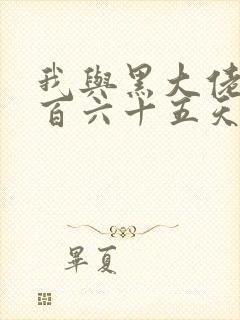 我與黑大佬
百六十五天
畢夏